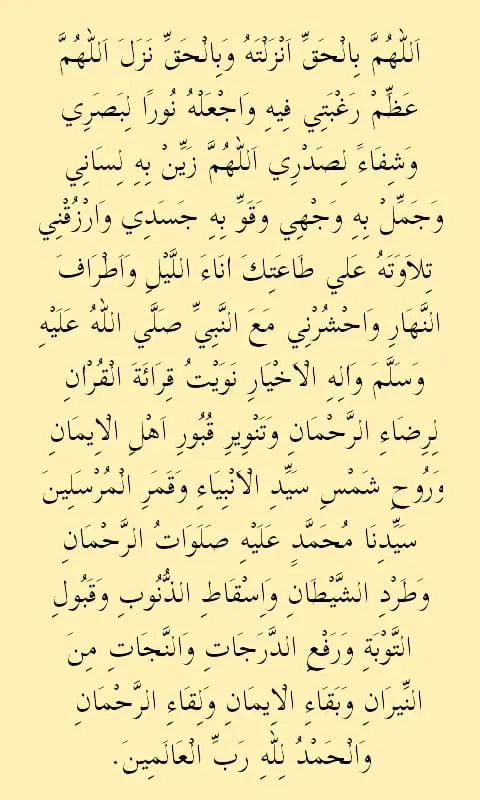 اَللّٰهُمَّ بِالْحَقِّ اَنْزَلْتَهُ وَبِالْحَقِّ نَزَلَ اَللّٰهُمَّ
عَظِّمْ رَغْبَتِي فِيهِ وَاجْعَلْهُ نُورًا لِبَصَرِي
وَشِفَاءً لِصَدْرِي اَللّٰهُمَّ زَيِّنْ بِهِ لِسَانِي
وَجَمِّلْ بِهِ وَجْهِي وَقَوِّ بِهِ جَسَدِي وَارْزُقْنِي
تِلاَوَتَهُ عَلَي طَاعَتِكَ انَاءَ اللَّيْلِ وَاَطْرَافَ
النَّهَارِ وَاحْشُرْنِي مَعَ النَّبِيِّ صَلَّي اللّٰهُ عَلَيْهِ
وَسَلَّمَ وَاٰلِهِ الْاَخْيَارِ نَوَيْتُ قِرَائَةَ الْقُرْاٰنِ
لِرِضَاءِ الرَّحْمَانِ وَتَنْوِيرِ قُبُورِ اَهْلِ الْاِيمَانِ
وَرُوحِ شَمْسِ سَيِّدِ الْاَنْبِيَاءِ وَقَمَرِ الْمُرْسَلِينَ
سَيِّدِنَا مُحَمَّدٍ عَلَيْهِ صَلَوَاتُ الرَّحْمَانِ
وَطَرْدِ الشَّيْطَانِ وَاِسْقَاطِ الذُّنُوبِ وَقَبُولِ
التَّوْبَةِ وَرَفْعِ الدَّرَجَاتِ وَالنَّجَاتِ مِنَ
النِّيرَانِ وَبَقَاءِ الْاِيمَانِ وَلِقَاءِ الرَّحْمَانِ
وَالْحَمْدُ لِلّٰهِ رَبِّ الْعَالَمِينَ.